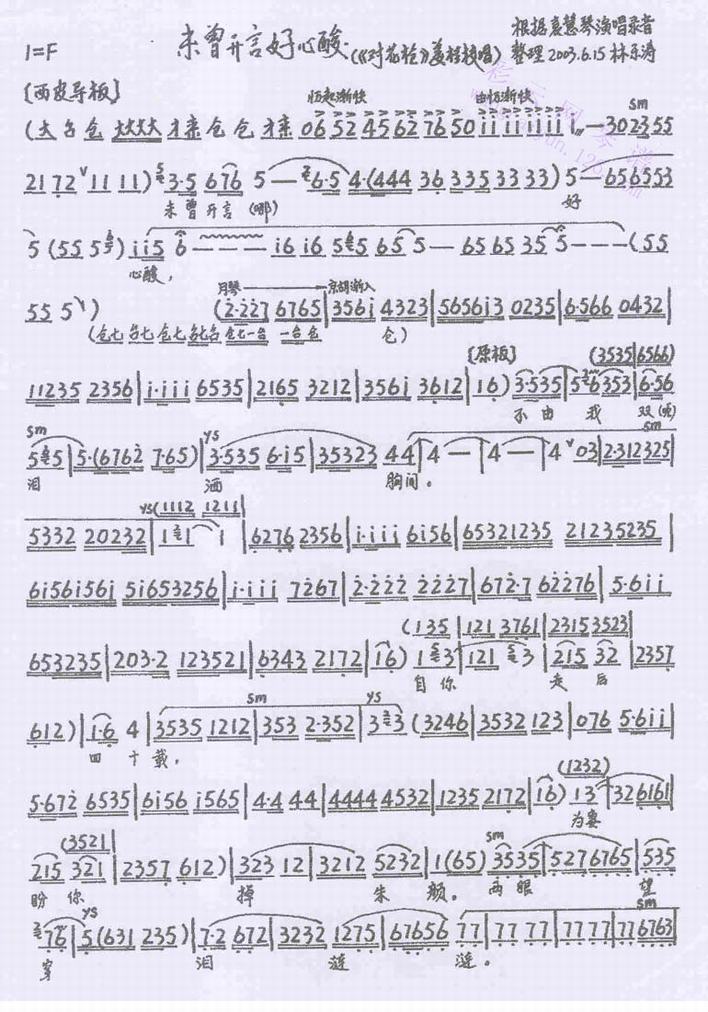 未曾开言好心酸
(《对花枪》姜桂枝唱)
根据袁慧琴演唱录音
整理 2003.6.15 林永涛
1=F
〔西皮导板〕
忸起渐快 由忸渐快 sm
(大台仓 大大大大 才来仓仓 才来 06 52 45 62 76 50 i i i i i i i i i〃— 30 23 55
21 72 ˅11 11) 3·5 676 5 — 6·5 4·(444 36 335 33 33) 5 — 656553
未曾开言 (哪) 好
5 (55 5) i i 5 6 — — — — i6 i6 5 5 65 5 — 65 65 35 5 — — — (55
心酸,
月琴 京胡渐入
55 5 ˅) (2·227 6765 | 356i 4323 | 5656i3 0235 | 6·566 0432 |
(仓七 台七 仓七 台七台 仓七一台 一台仓 仓)
〔原板〕 (3535 | 6566)
11235 2356 | i·iii 6535 | 2165 3212 | 356i 3612 | 16) 3·535 | 5 6353 | 6·56
不由 我 双(呃)
sm ys sm
5 5 | 5·(6762 7·65) | 3·535 6·i5 | 35323 44 | 4 — | 4 — | 4 ˅ 03 | 2·312325 |
泪 洒 胸间。
ys (1112 1211
5332 20232 | 1 1 1 | 6276 2356 | i·iii 6i56 | 65321235 21235235 |
6i56i56i 5i653256 | i·iii 7267 | 2·222 2227 | 672·7 62276 | 5·6ii
(135 | 121 3761 | 23153523
653235 | 203·2 123521 | 6343 2172 | 16) 1 3 | 121 3 | 215 32 | 2357
自你 走后
sm ys
612) | 1·6 4 | 3535 1212 | 353 2·352 | 3 3 (3246 | 3532 123 | 076 5·6ii |
四十载,
(1232)
5·672 6535 | 6i56 i565 | 4·4 44 | 4444 4532 | 1235 2172 | 16) 13 | 326161 |
为妻
(3521 sm
215 321 | 2357 612) | 323 12 | 3212 5232 | 1(65) 3535 | 5276765 | 535
盼你 掉 朱颜。 两眼 望
ys sm
76 | 5(631 235) | 7·2 672 | 3232 1275 | 67656 77 | 77 77 | 77 77 | 77 6763 |
穿 泪 涟 涟。